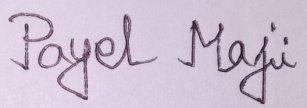 Payel Maji